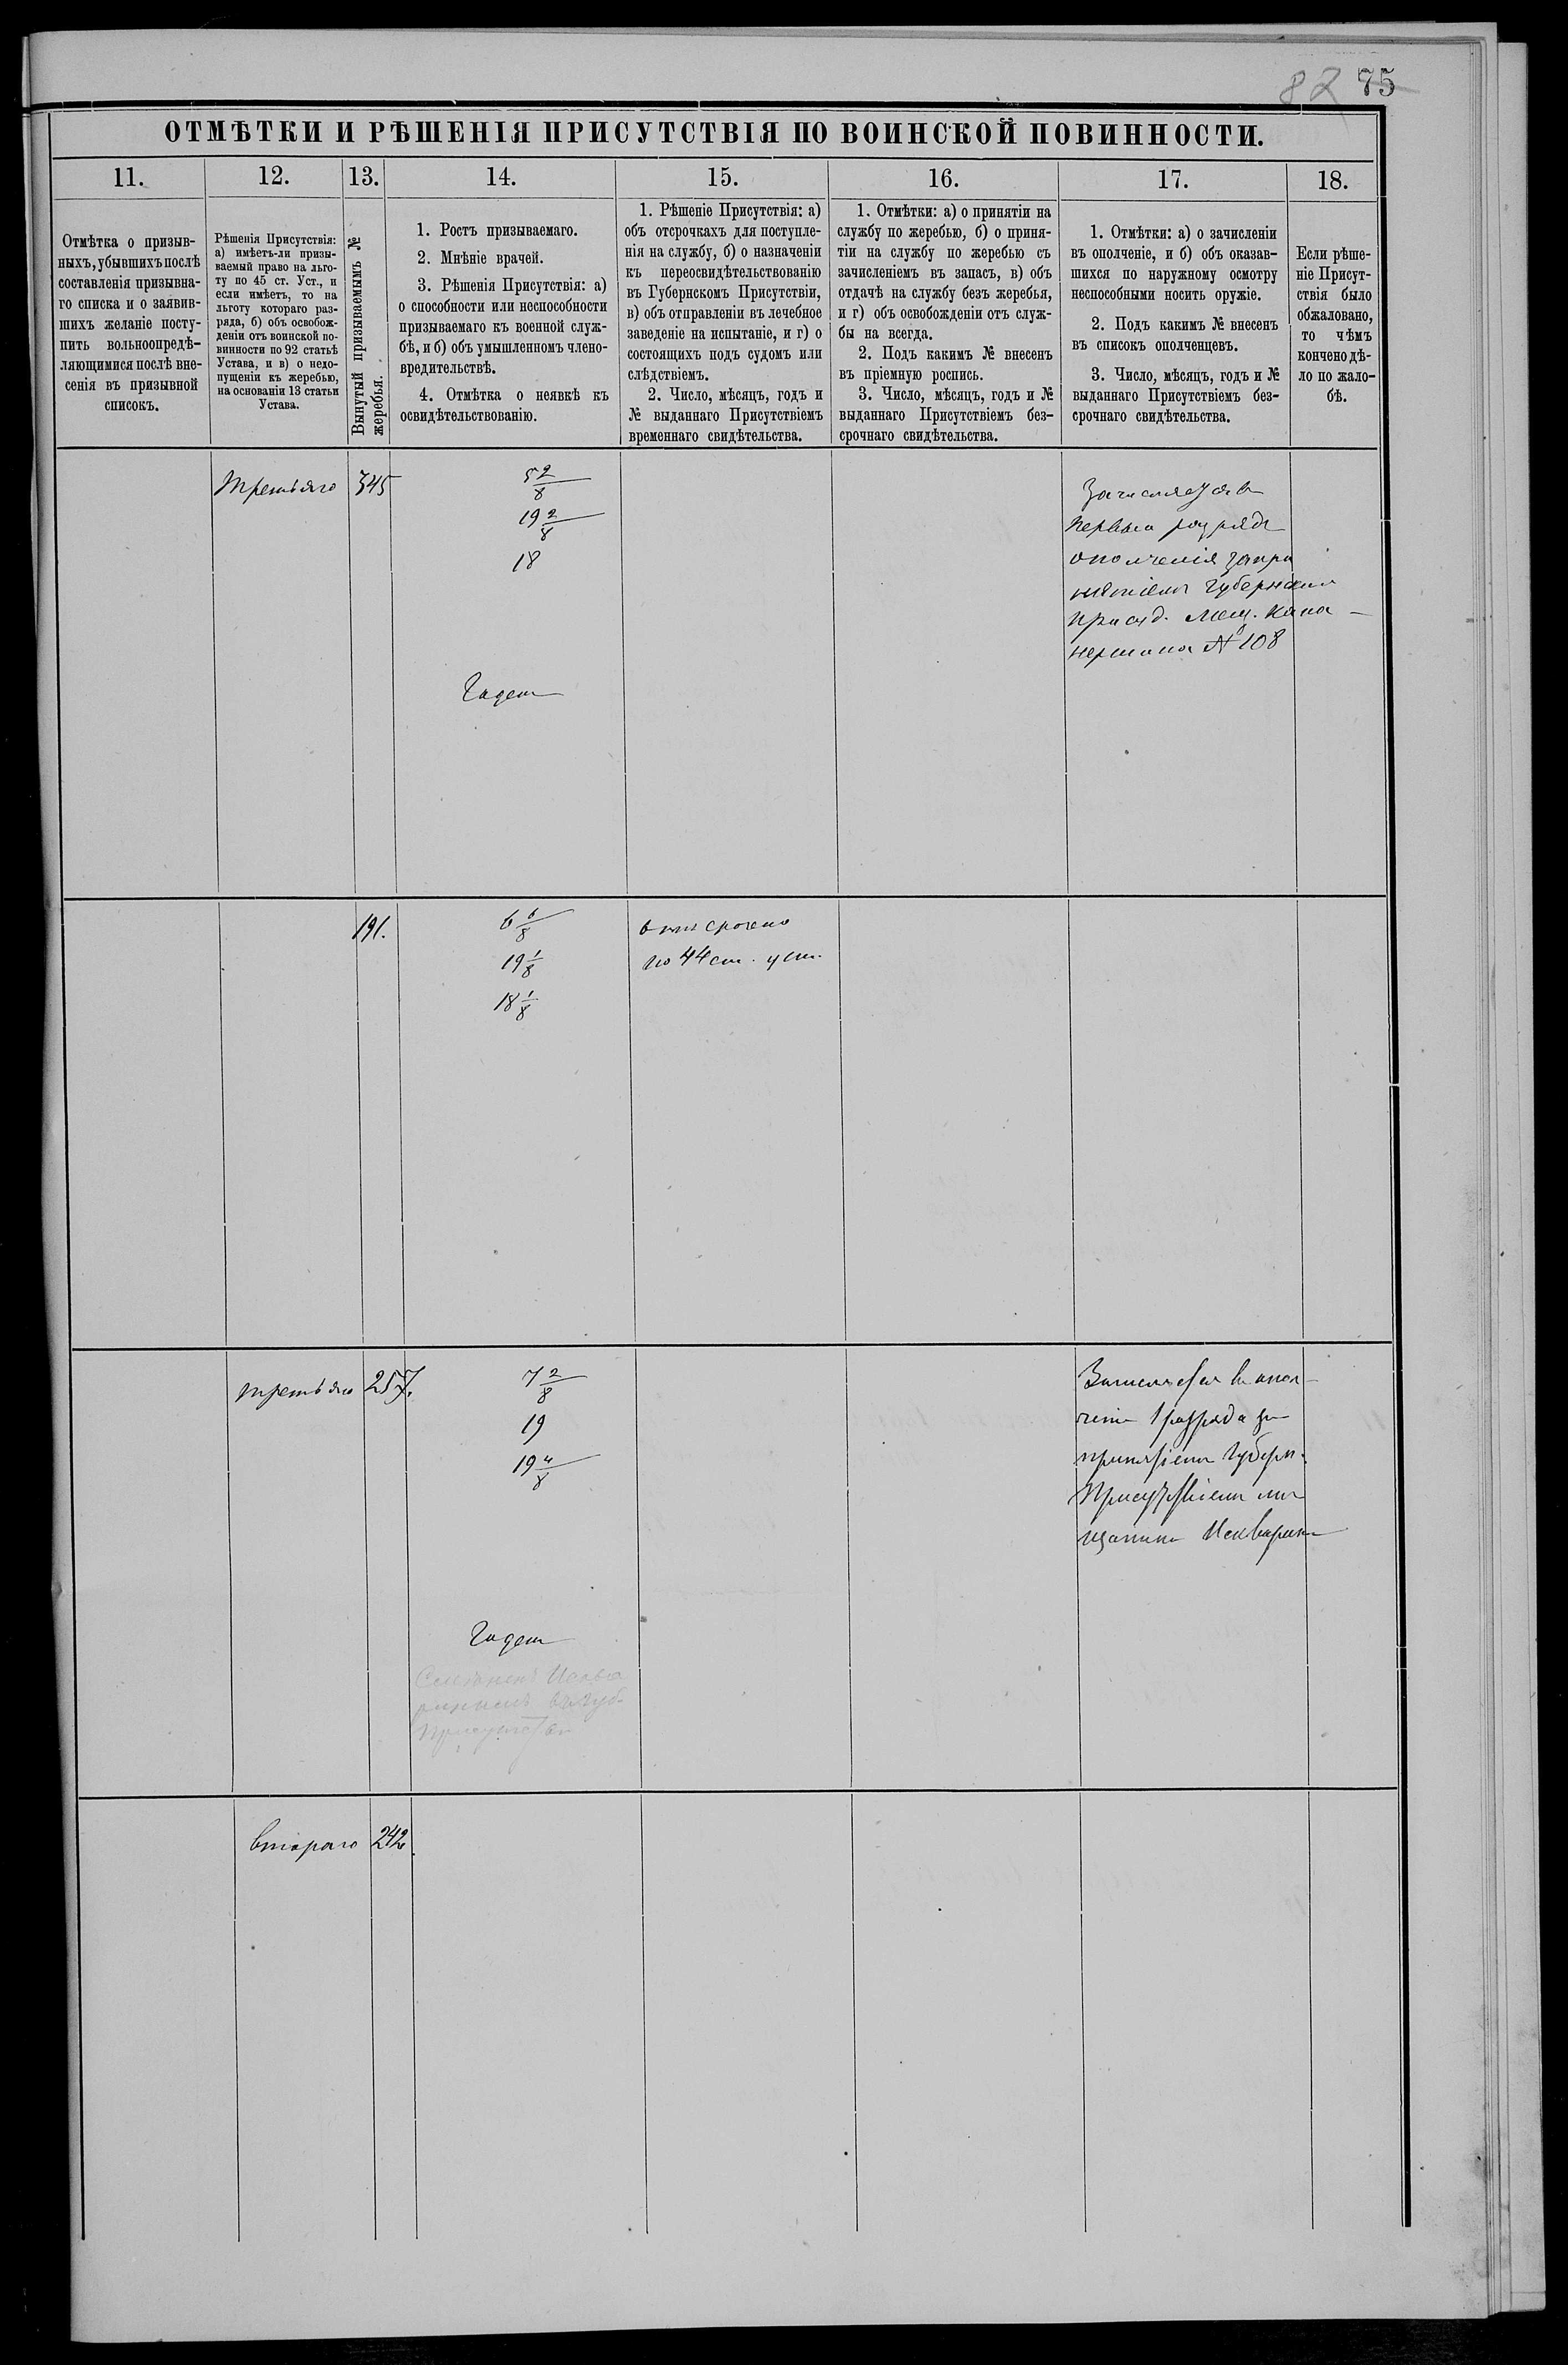 82 75
ОТМѢТКИ И РѢШЕНІЯ ПРИСУТСТВІЯ ПО ВОИНСКОЙ ПОВИННОСТИ.
11.
Отмѣтка о призыв-
ныхъ, убывшихъ послѣ
составленія призывна-
го списка и о заявив-
шихъ желаніе посту-
пить вольноопредѣ-
ляющимися послѣ вне-
сенія въ призывной
списокъ.
12.
Рѣшенія Присутствія:
а) имѣетъ-ли призы-
ваемый право на льго-
ту по 45 ст. Уст., и
если имѣетъ, то на
льготу котораго раз-
ряда, б) объ освобож-
деніи отъ воинской по-
винности по 92 статьѣ
Устава, и в) о недо-
пущеніи къ жеребью,
на основаніи 13 статьи
Устава.
13.
Вынутый призываемымъ №
жеребья.
14.
1. Ростъ призываемаго.
2. Мнѣніе врачей.
3. Рѣшенія Присутствія: а)
о способности или неспособности
призываемаго къ военной служ-
бѣ, и б) объ умышленномъ члено-
вредительствѣ.
4. Отмѣтка о неявкѣ къ
освидѣтельствованію.
15.
1. Рѣшеніе Присутствія: а)
объ отсрочкахъ для поступле-
нія на службу, б) о назначеніи
къ переосвидѣтельствованію
въ Губернскомъ Присутствіи,
в) объ отправленіи въ лечебное
заведеніе на испытаніе, и г) о
состоящихъ подъ судомъ или
слѣдствіемъ.
2. Число, мѣсяцъ, годъ и
№ выданнаго Присутствіемъ
временнаго свидѣтельства.
16.
1. Отмѣтки: а) о принятіи на
службу по жеребью, б) о приня-
тіи на службу по жеребью съ
зачисленіемъ въ запасъ, в) объ
отдачѣ на службу безъ жеребья,
и г) объ освобожденіи отъ служ-
бы на всегда.
2. Подъ какимъ № внесенъ
въ пріемную роспись.
3. Число, мѣсяцъ, годъ и №
выданнаго Присутствіемъ без-
срочнаго свидѣтельства.
17.
1. Отмѣтки: а) о зачисленіи
въ ополченіе, и б) объ оказав-
шихся по наружному осмотру
неспособными носить оружіе.
2. Подъ какимъ № внесенъ
въ списокъ ополченцевъ.
3. Число, мѣсяцъ, годъ и №
выданнаго Присутствіемъ без-
срочнаго свидѣтельства.
18.
Если рѣше-
ніе Присут-
ствія было
обжаловано,
то чѣмъ
кончено дѣ-
ло по жало-
бѣ.
третьяго
345
5 2/8
19 2/8
18
Годенъ
Зачисляется въ
первый разрядъ
ополченія за при
нятіемъ Губернскимъ
присут. мѣщ.
№ 108
191.
6 6/8
19 1/8
18 1/8
отсрочено
по 44 ст. уст.
третьяго
257.
7 2/8
19
19 4/8
Годенъ
въ Губ.
Присутствіи
Зачисляется въ опол-
ченіе 1 разряда за
принятіемъ Губерн.
Присутствіемъ мѣ
щанина
второго
242.